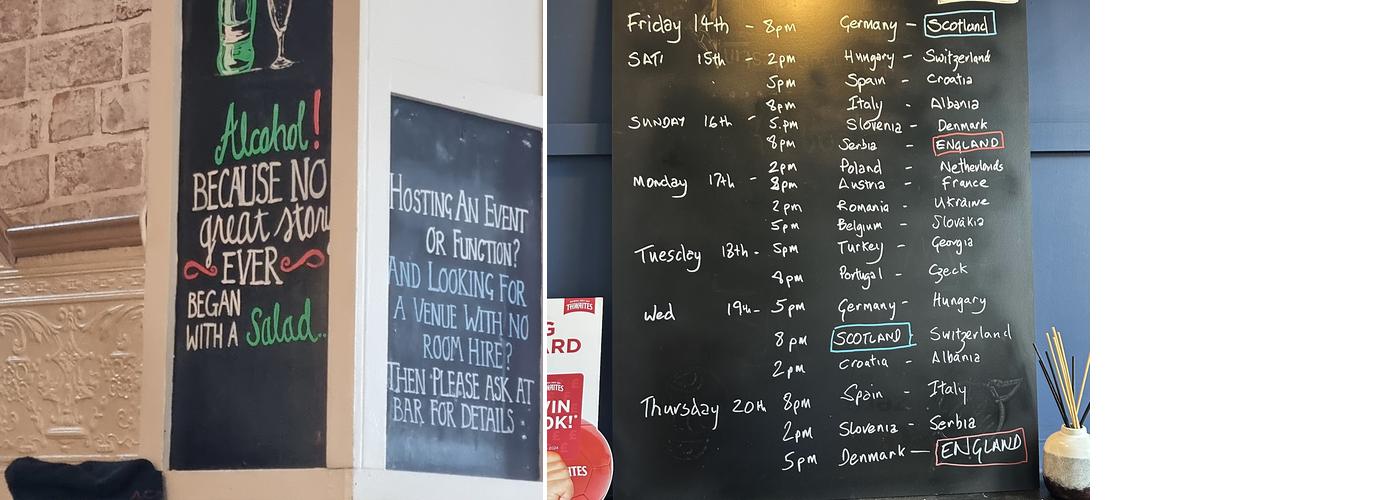 Alcohol!
BECAUSE NO
great story
EVER
BEGAN
WITH A Salad..
HOSTING AN EVENT
OR FUNCTION?
AND LOOKING FOR
A VENUE WITH NO
ROOM HIRE?
THEN PLEASE ASK AT
BAR FOR DETAILS :
Friday 14th - 8pm Germany - Scotland
SAT 15th - 2pm Hungary - Switzerland
5pm Spain - Croatia
8pm Italy - Albania
SUNDAY 16th - 5.pm Slovenia - Denmark
8pm Serbia - ENGLAND
2pm Poland - Netherlands
Monday 17th - 8pm Austria - France
2pm Romania - Ukraine
5pm Belgium - Slovakia
Tuesday 18th - 5pm Turkey - Georgia
8pm Portugal - Czeck
Wed 19th - 5pm Germany - Hungary
8pm SCOTLAND - Switzerland
2pm Croatia - Albania
Thursday 20th 8pm Spain - Italy
2pm Slovenia - Serbia
5pm Denmark - ENGLAND
THWAITES
ARD
WIN
OK!*
ITES